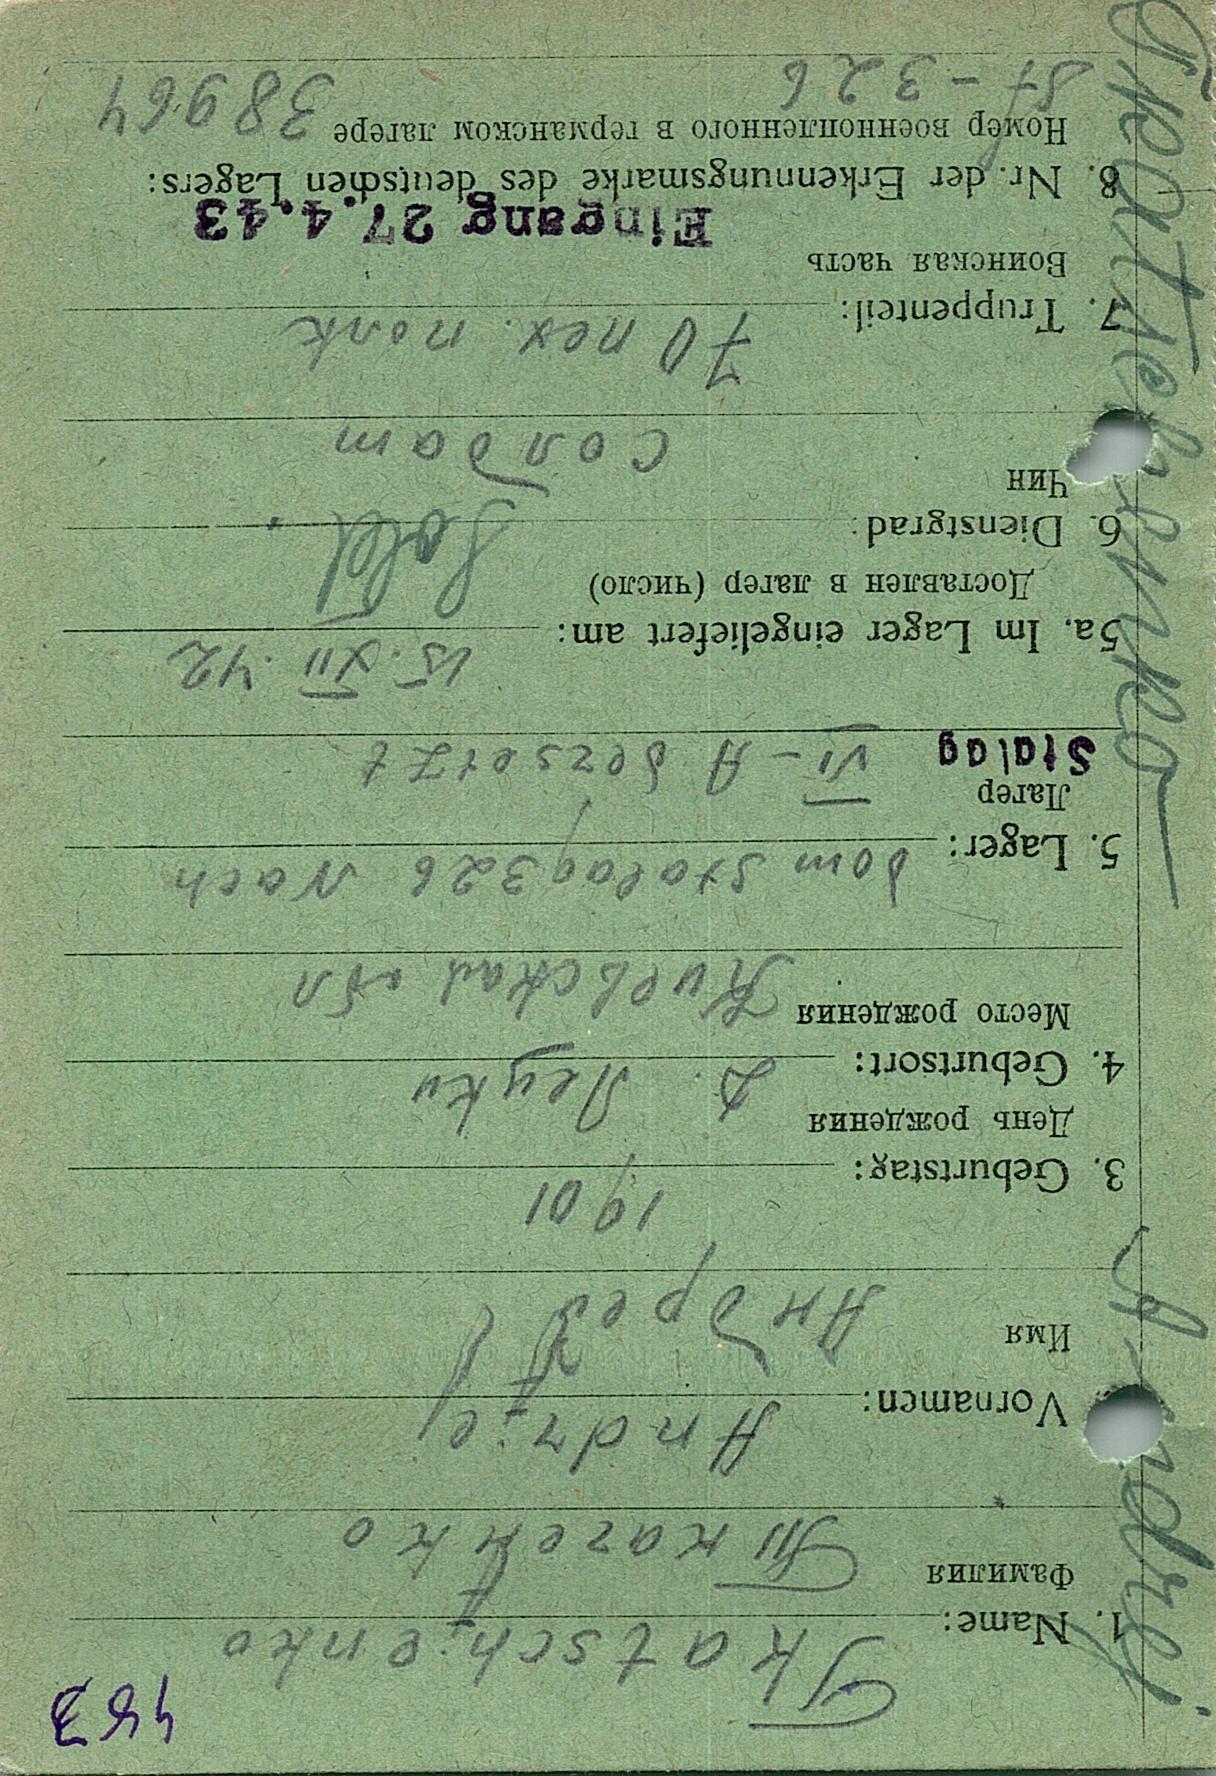 483
1. Name: Tkatschienko
Фамилия Ткаченко
Vornamen: Andriej
Имя Андрей
3. Geburtstag: 1901
День рождения
4. Geburtsort: д.
Место рождения Киевская обл
5. Lager: vom Stalag 326 Nach
Лагер
Stalag VI-A versetzt
5a. Im Lager eingeliefert am: 15.XII.42
Доставлен в лагер (число)
6. Dienstgrad: Sold.
Чин солдат
7. Truppenteil: 70 пех. полк
Воинская часть
Eingang 27.4.43
8. Nr. der Erkennungsmarke des deutschen Lagers:
Номер военнопленного в германском лагере 38964
St-326
Tkatschenko Andrej